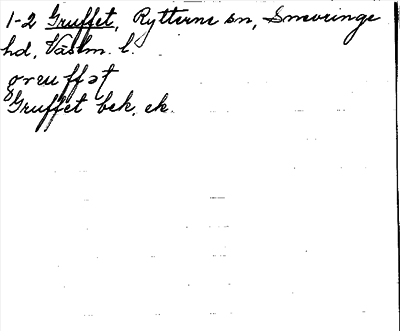 1-2 Gruffet, Rytterne sn, Snevringe
hd, Västm. l.
gruffət
Gruffet bek. ek.